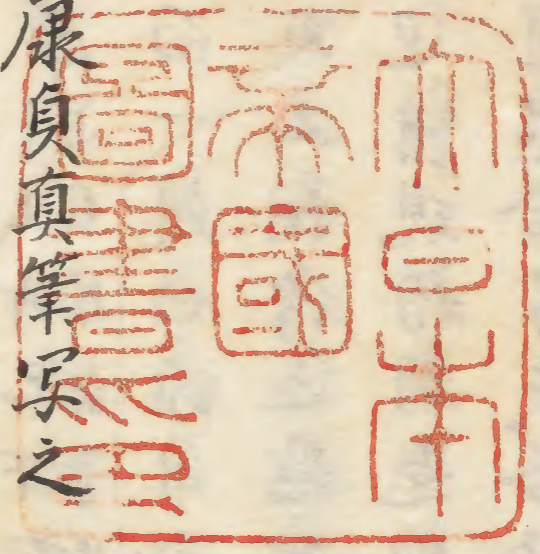 大日本
帝國
圖書印
康貞真筆写之